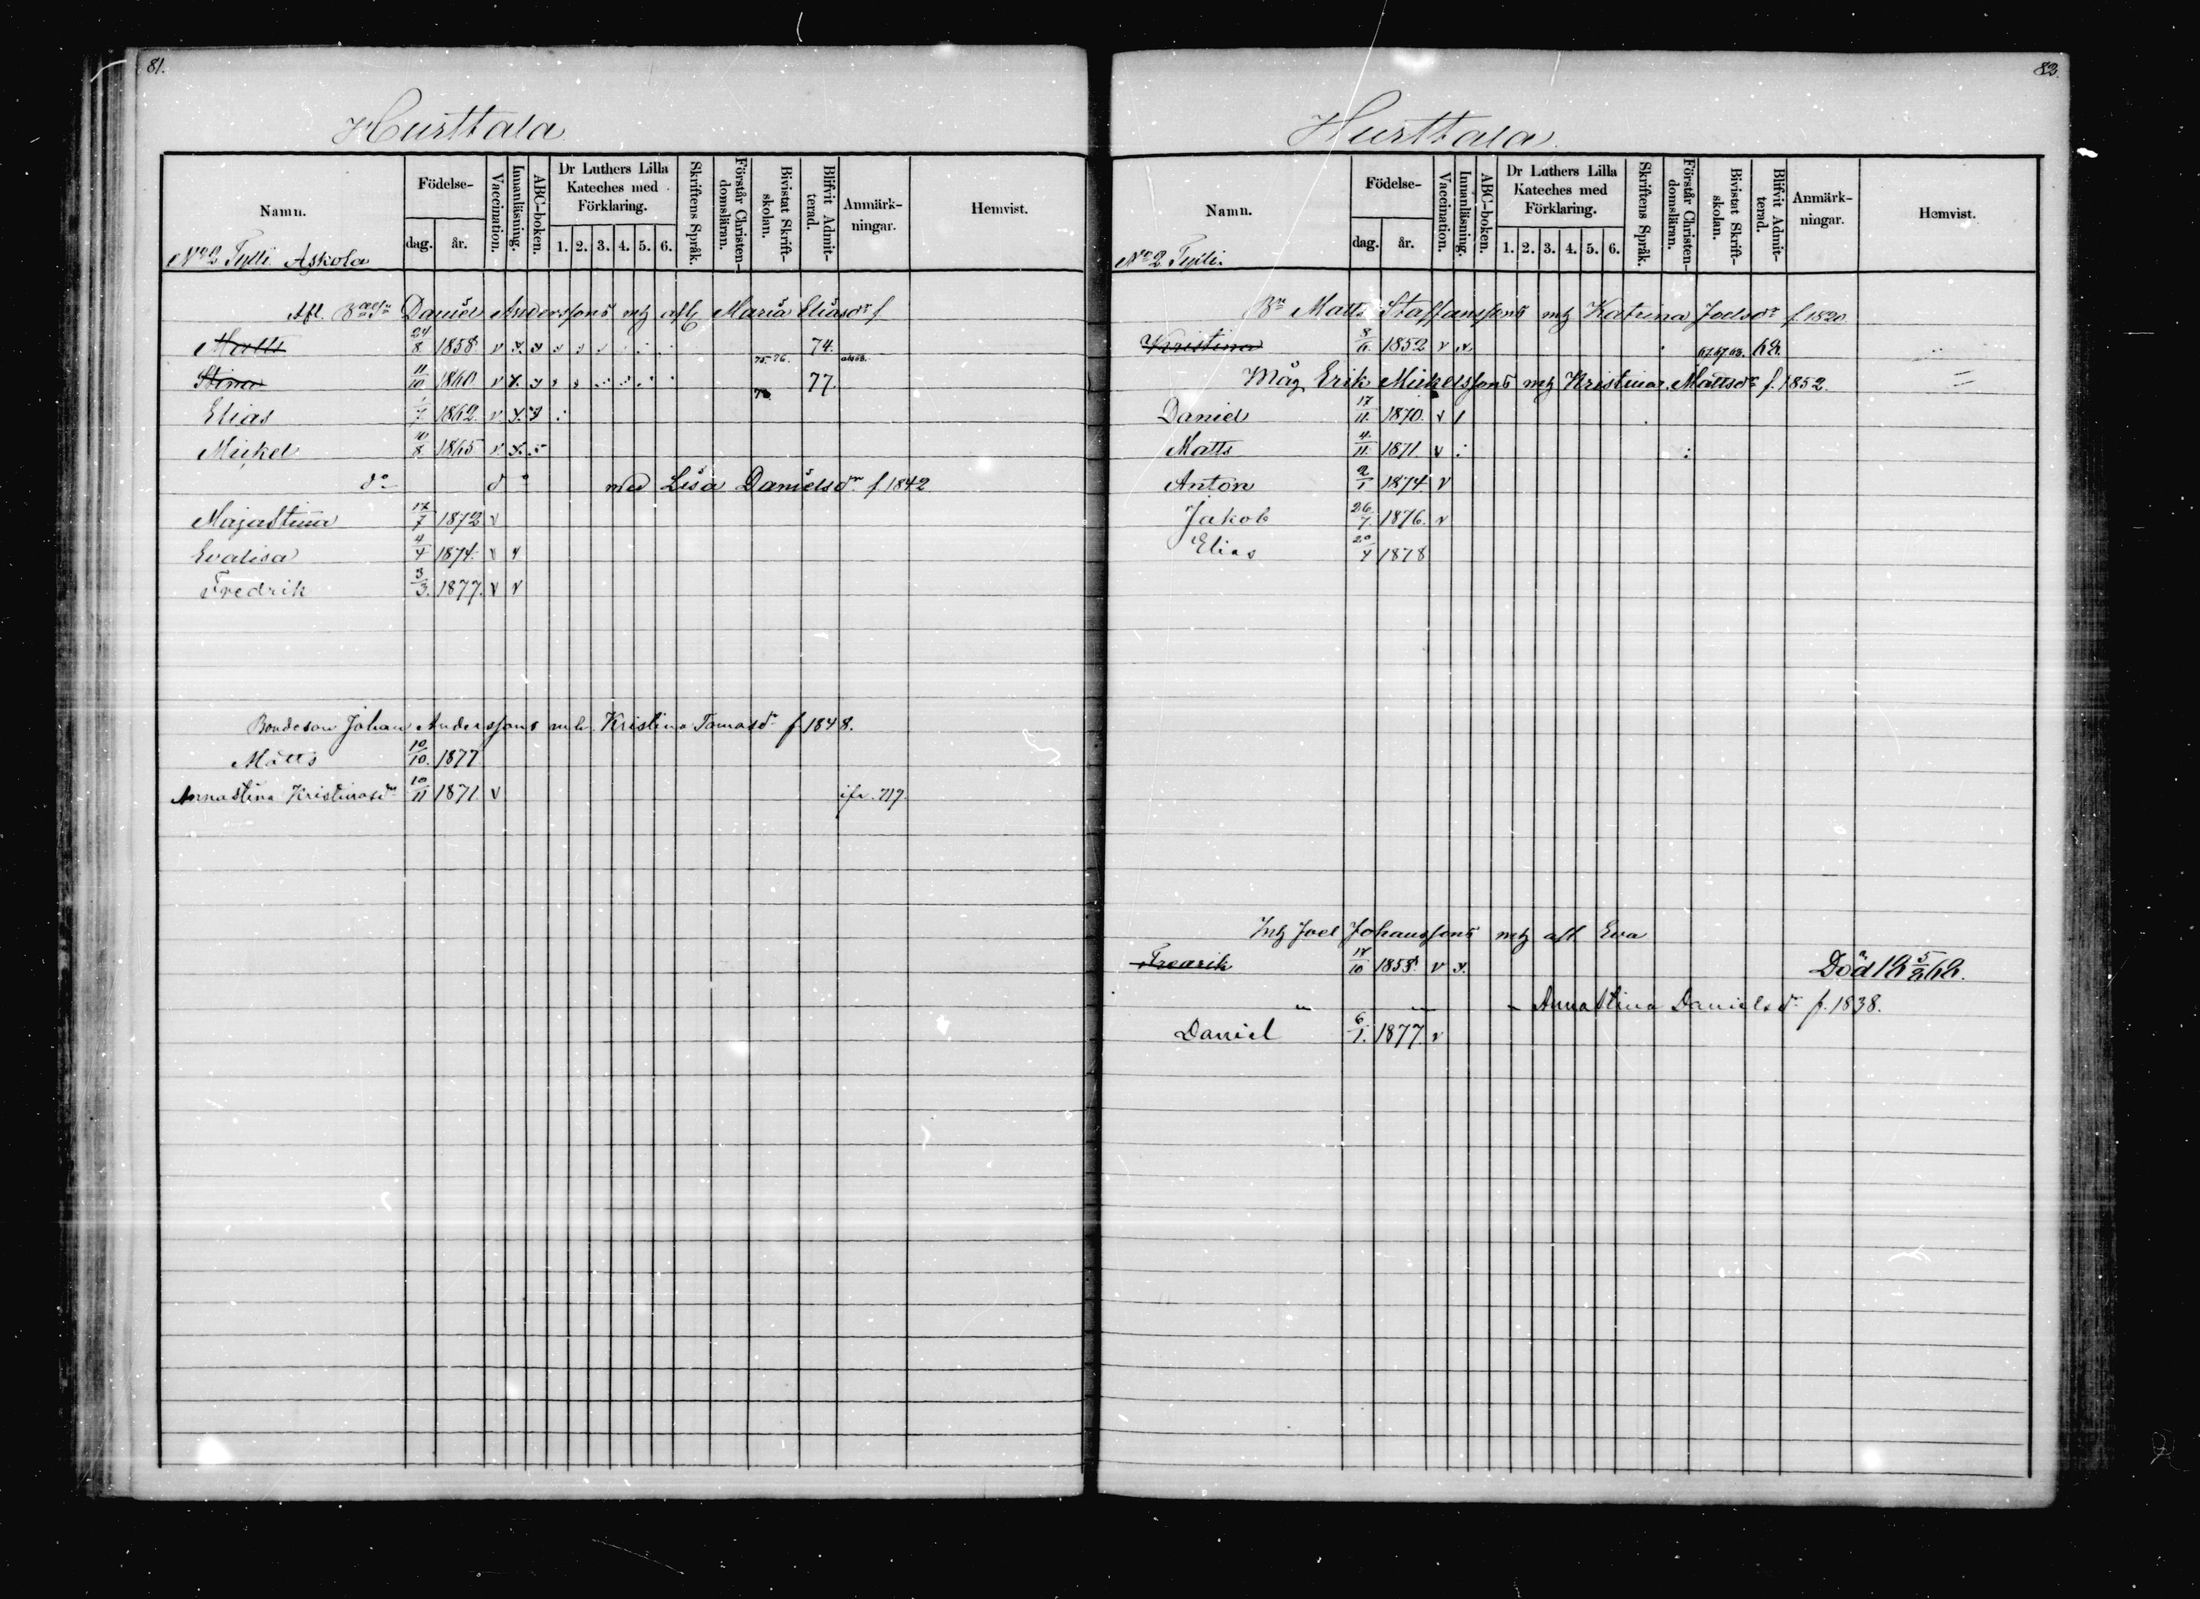 81.
Hurttala
Namn.
Födelse-
dag. år.
Vaccination.
Innanläsning.
ABC-boken.
Dr Luthers Lilla Kateches med Förklaring.
1. 2. 3. 4. 5. 6.
Skriftens Språk.
Förstår Christendomsläran.
Bivistat Skriftskolan.
Blifvit Admitterad.
Anmärkningar.
Hemvist.
No 2 Tylli Askola
Afl. Daniel Anderssons mh afl Maria Eliasdr f
Matts 24/8 1858 v 74.
Stina 11/10 1860 v 75 76. 77.
Elias 1/7 1862 v
Mickel 10/8 1865 v
do do med Lisa Danielsdr f 1842
Majastina 17/7 1872 v
Evalisa 4/4 1874 v v
Fredrik 3/3. 1877. v v
Bondeson Johan Anderssons mh. Kristina Tomasdr f. 1848.
Matts 10/10. 1877
Annastina Kristinasdr 10/11 1871. v ifr. 717.
82.
Hurttala.
Namn.
Födelse-
dag. år.
Vaccination.
Innanläsning.
ABC-boken.
Dr Luthers Lilla Kateches med Förklaring.
1. 2. 3. 4. 5. 6.
Skriftens Språk.
Förstår Christendomsläran.
Bivistat Skriftskolan.
Blifvit Admitterad.
Anmärkningar.
Hemvist.
No 2 Tylli.
Bn Matts Staffanssons mh Katrina Joelsdr f. 1820
Kristina 8/6 1852 v v 68.
Måg Erik Mickelssons mh Kristina Mattsdr f. 1852.
Daniel 17/11. 1870. v
Matts 4/11. 1871. v
Anton 2/1 1874. v
Jakob 26/7. 1876. v
Elias 20/4 1878
Inh Joel Johanssons mh afl Eva
Fredrik 14/10 1858. v Död 18 5/2 68.
" " - Annastina Danielsdr f. 1838.
Daniel 6/1. 1877 v